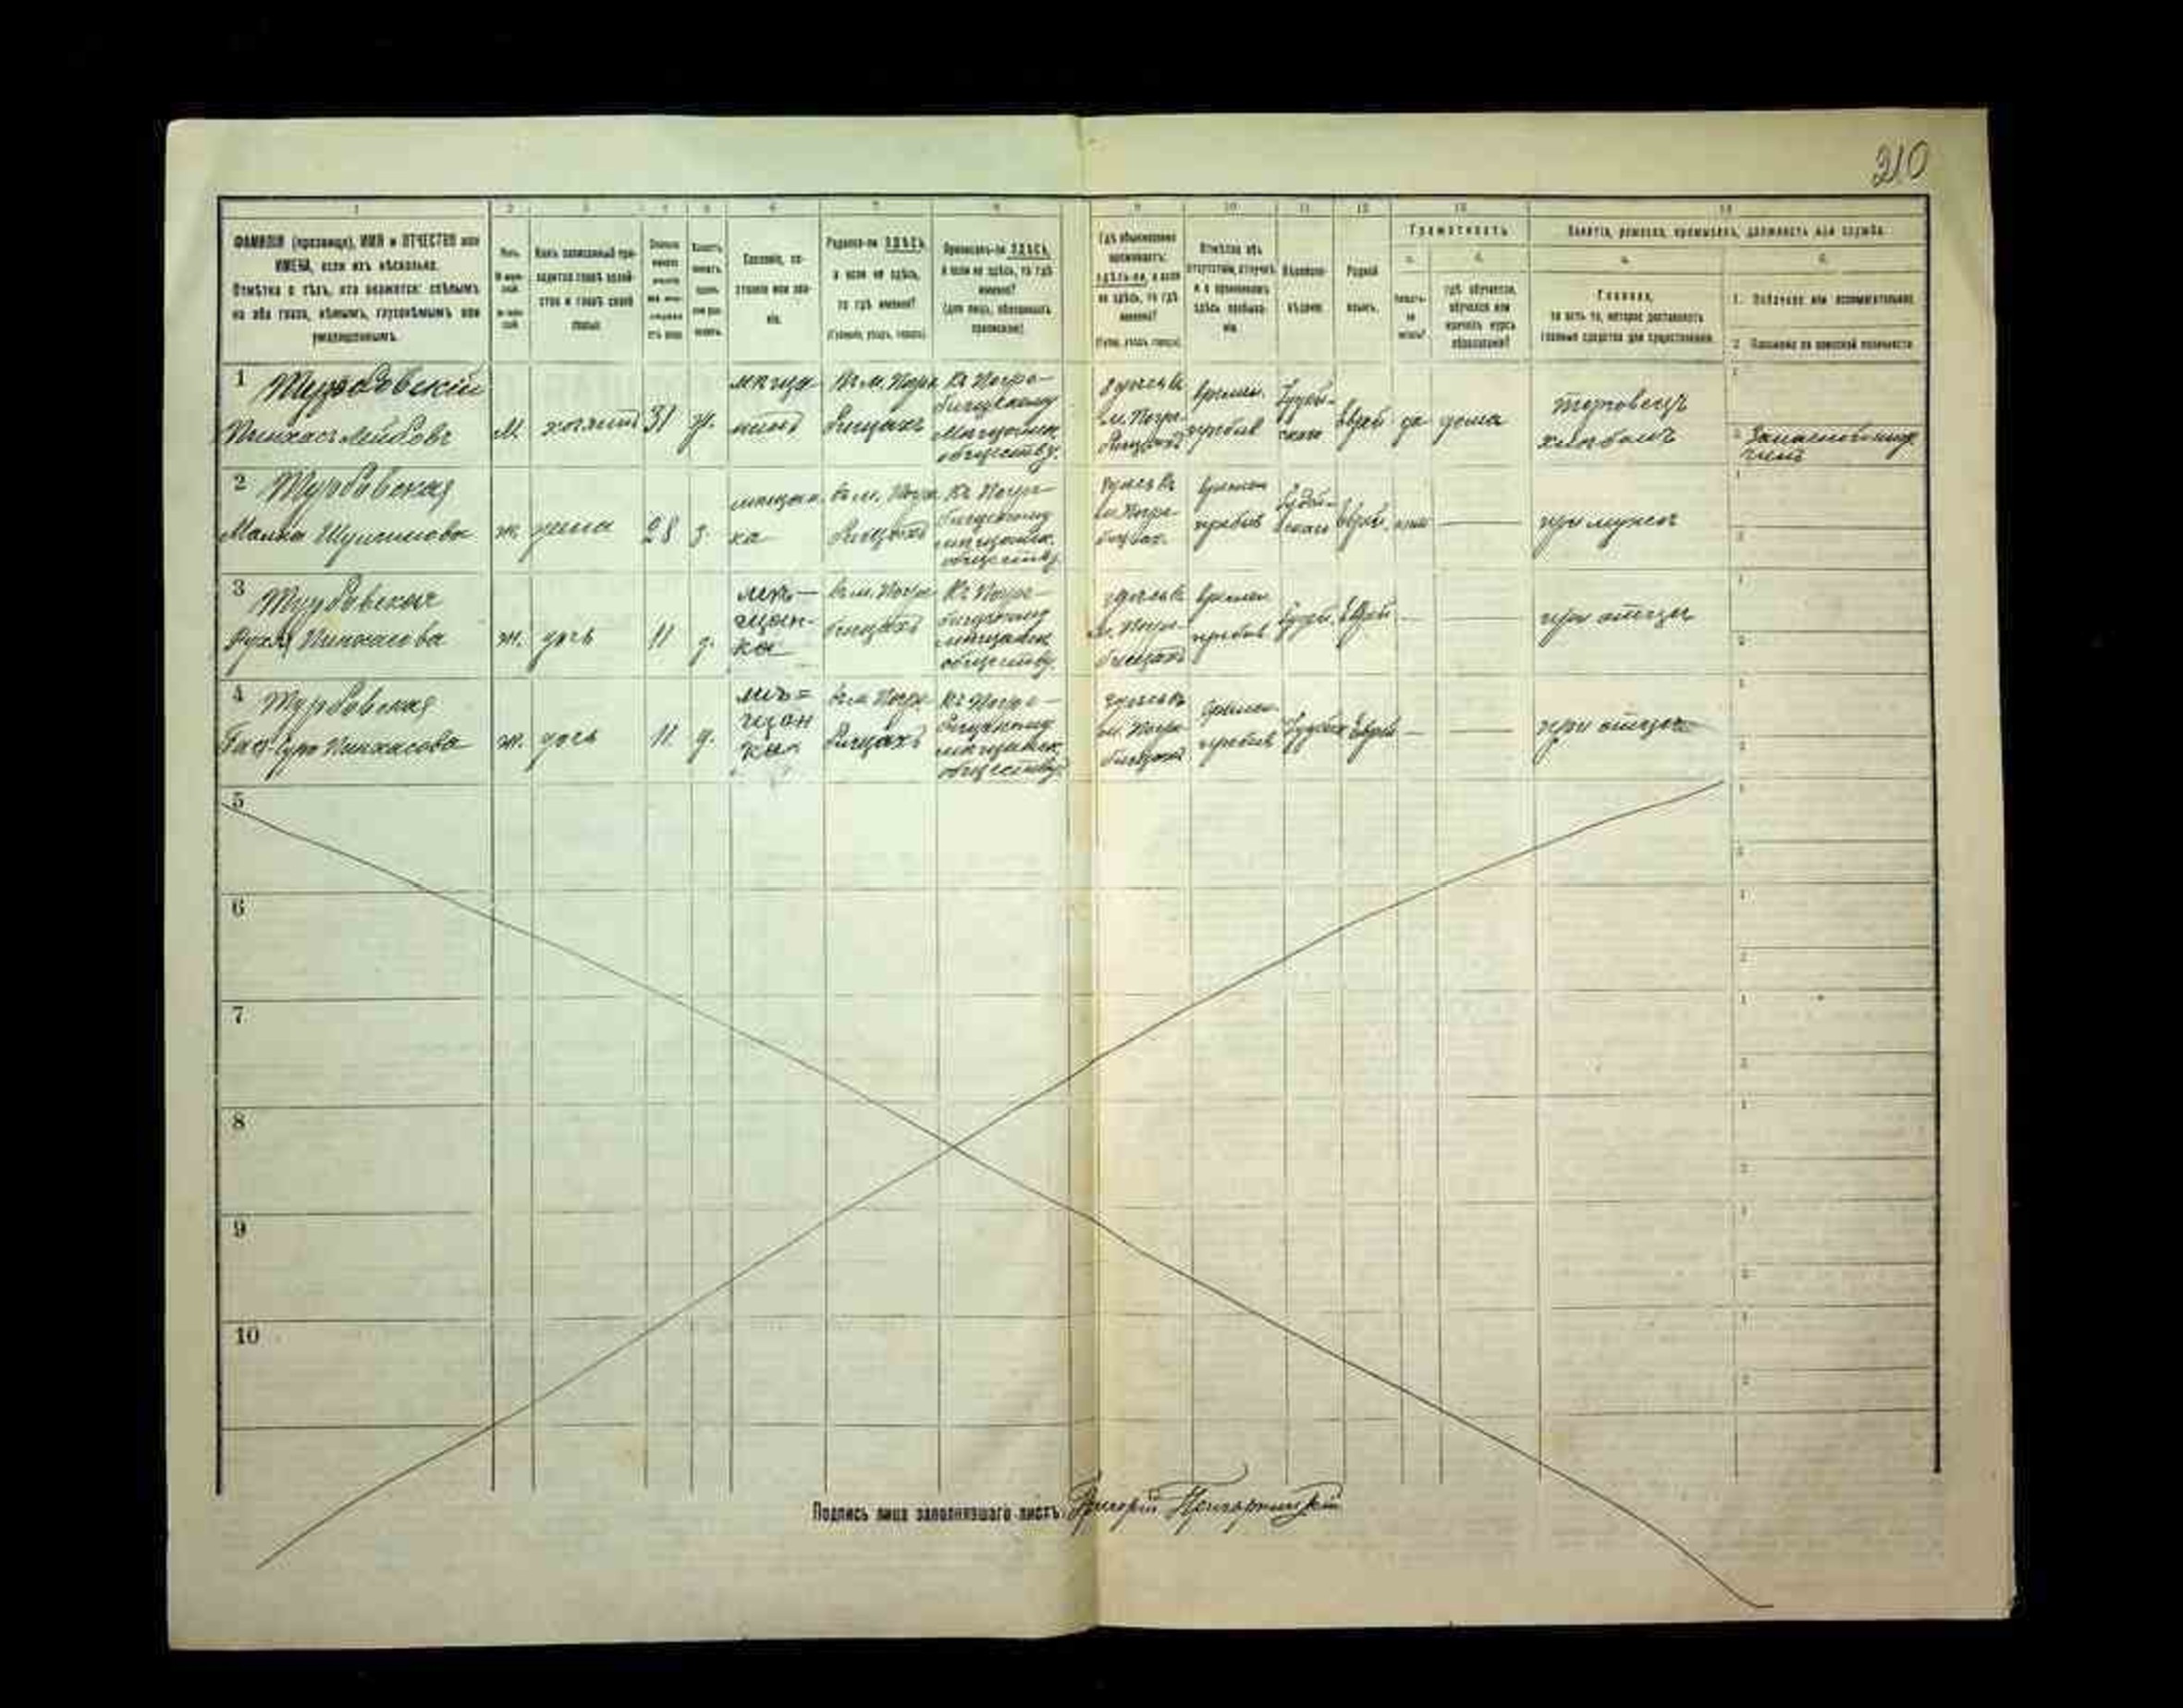 210
1 2 3 4 5 6 7 8 9 10 11 12 13 14
ФАМИЛІЯ (прозвище), ИМЯ и ОТЧЕСТВО или
ИМЕНА, если ихъ нѣсколько.
Отмѣтка о тѣхъ, кто окажется: слѣпымъ
на оба глаза, нѣмымъ, глухонѣмымъ или
умалишеннымъ.
Полъ.
Какъ записанный при-
ходится главѣ хозяй-
ства и главѣ своей
семьи.
Сословіе, со-
стояніе или зва-
ніе.
Родился-ли ЗДѢСЬ,
а если не здѣсь,
то гдѣ именно?
(Губернія, уѣздъ, городъ)
Приписанъ-ли ЗДѢСЬ,
а если не здѣсь, то гдѣ
именно?
(для лицъ, обязанныхъ
припискою)
Гдѣ обыкновенно
проживаетъ:
здѣсь-ли, а если
не здѣсь, то гдѣ
именно?
(Губ., уѣздъ, городъ)
Отмѣтка объ
отсутствіи, отлучкѣ
и о временномъ
здѣсь пребыва-
ніи.
Вѣроиспо-
вѣданіе.
Родной
языкъ.
Грамотность
а.
б.
Умѣетъ-
ли
читать?
Гдѣ обучается,
обучался или
кончилъ курсъ
образованія?
Занятія, ремесло, промыселъ, должность или служба
а.
б.
Главное,
то есть то, которое доставляетъ
главныя средства для существованія.
1. Побочное или вспомогательное.
2. Положеніе по воинской повинности
1 Турбовскій
Пинхасъ Лейбовъ
М. хозяинъ 31 ж.
мѣща
нинъ
Въ м. Погре
бищахъ
Къ Погре-
бищскому
мѣщанск.
обществу.
здѣсь въ
м. Погре-
бищахъ
времен.
пребыв
Іудей-
ское
Еврей да дома
торговецъ
хлѣбомъ
2 Запасной
2 Турбовская
Малка
ж. жена 28 з.
мѣщан.
ка
въ м. Погре
бищахъ
Къ Погре-
бищскому
мѣщанск.
обществу
здѣсь въ
м. Погре
бищах.
времен
пребыв
Іудей-
ское
Еврей. нѣт
при мужѣ
3 Турбовская
Рухля Пинхасова
ж. дочь 11 д.
мѣ-
щан-
ка
въ м. Погре-
бищахъ
Къ Погре-
бищскому
мѣщанск
обществу.
здѣсь въ
м. Погре-
бищахъ
времен
пребыв
Іудей. Еврей
при отцѣ
4 Турбовская
Пинхасова
ж. дочь 11. д.
мѣ=
щан
ка
въ м Погре-
бищахъ
Къ Погре-
бищскому
мѣщанск.
обществу.
здѣсь въ
м. Погре
бищахъ
времен.
пребыв
Іудейск Еврей
при отцѣ
5
6
7
8
9
10
Подпись лица заполнявшаго листъ: Григорій